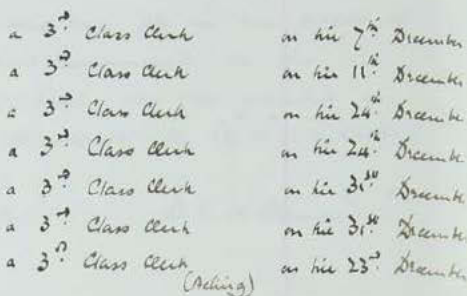 a 3rd Class Clerk on the 7th December
a 3rd Class Clerk on the 11th December
a 3rd Class Clerk on the 24th December
a 3rd Class Clerk on the 24th December
a 3rd Class Clerk on the 31st December
a 3rd Class Clerk on the 31st December
a 3rd Class Clerk on the 23rd December
(Acting)